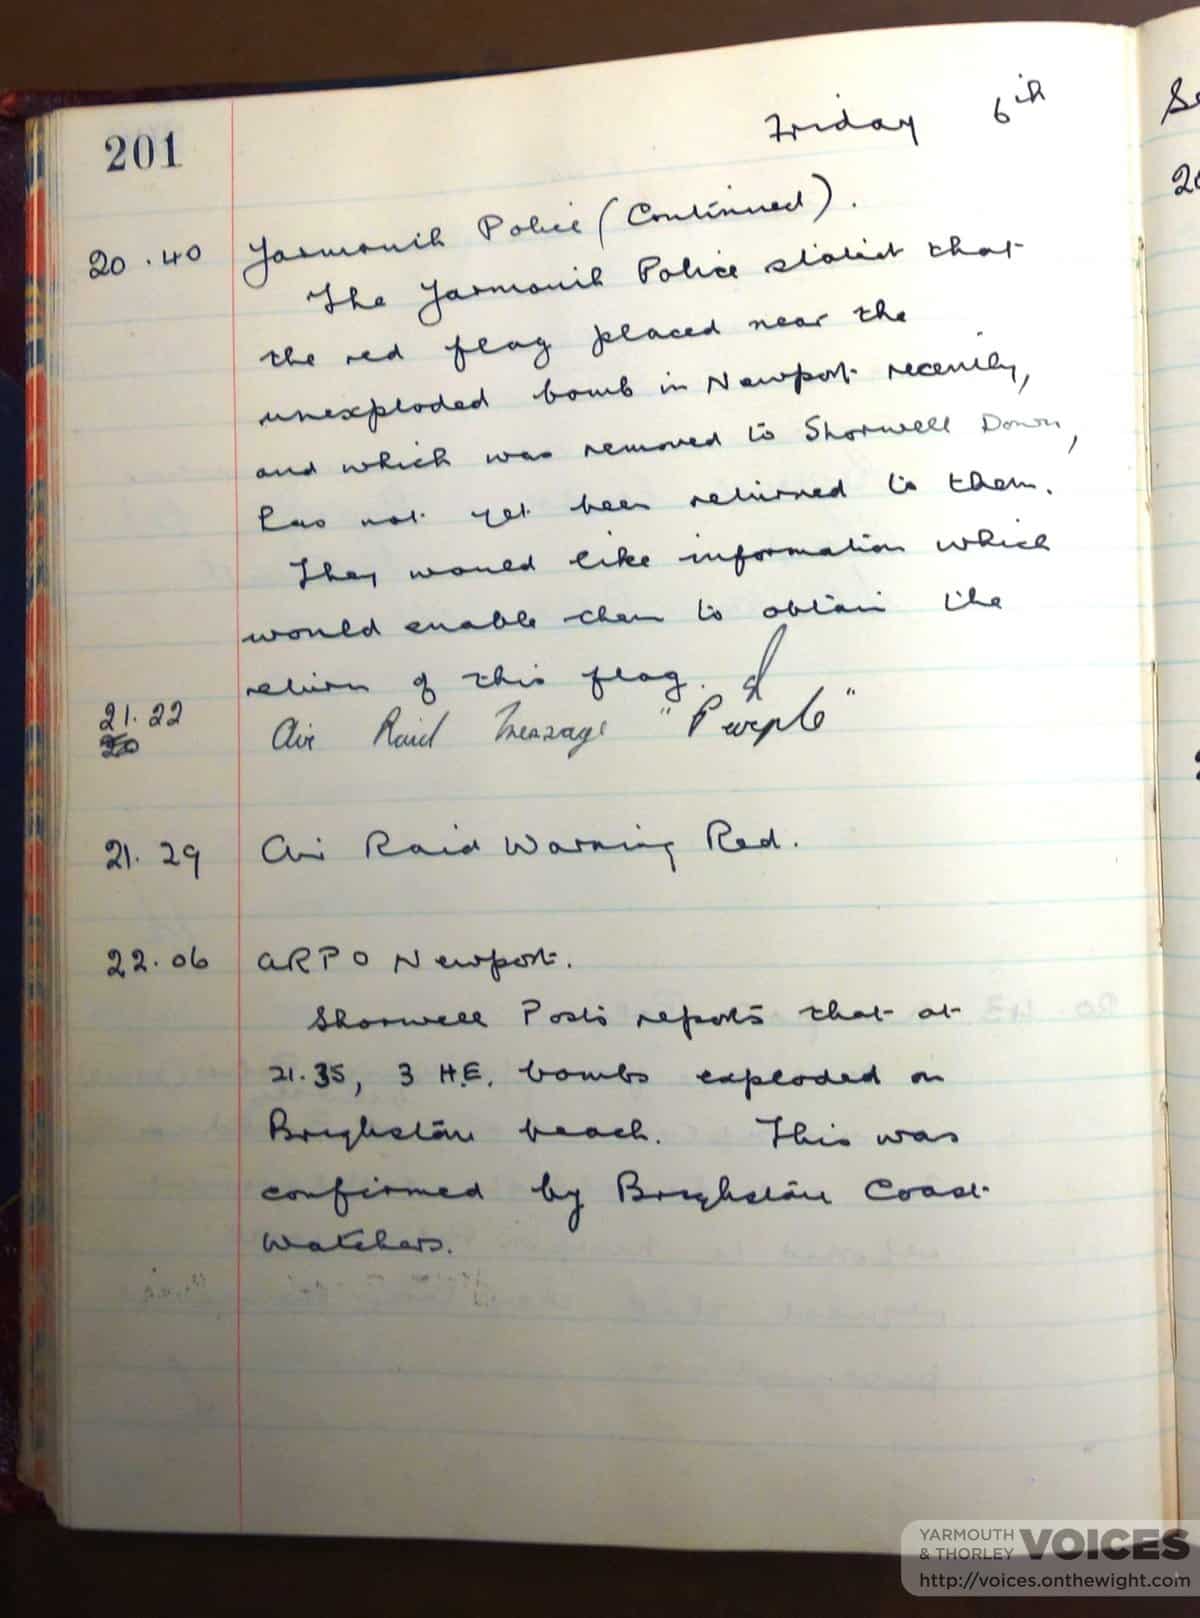 201
Friday 6th
20.40 Yarmouth Police (Continued).
The Yarmouth Police stated that
the red flag placed near the
unexploded bomb in Newport recently,
and which was removed to Shorwell Down,
has not yet been returned to them.
They would like information which
would enable them to obtain the
return of this flag.
21.22 Air Raid Message "Purple"
20
21.29 Air Raid Warning Red.
22.06 ARPO Newport.
Shorwell Posts reports that at
21.35, 3 H.E. bombs exploded on
Brighstone beach. This was
confirmed by Brighstone Coast
Watchers.
YARMOUTH
& THORLEY VOICES
http://voices.onthewight.com